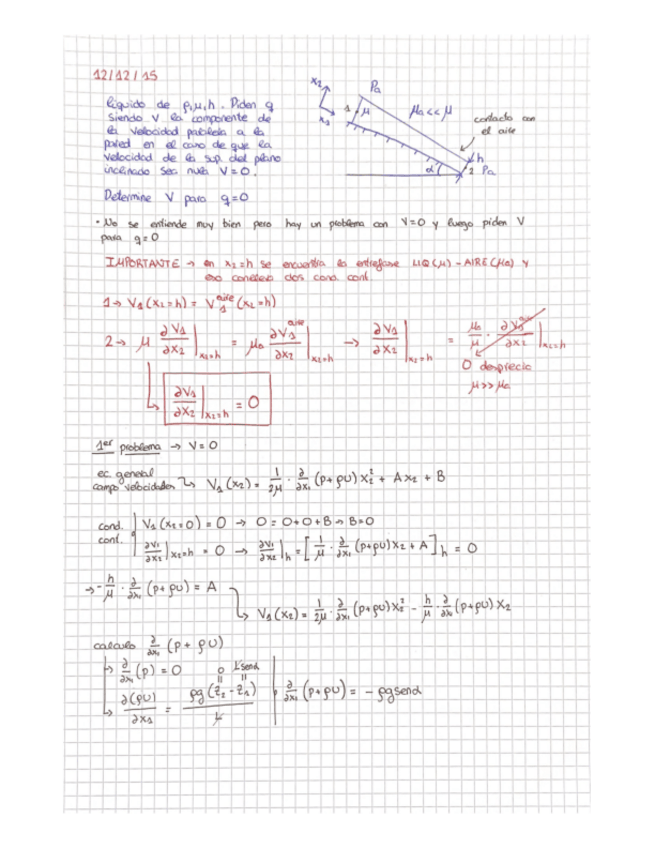 12/12/15
líquido de ρ,μ,h. Piden q
siendo V la componente de
la velocidad paralela a la
pared en el caso de que la
velocidad de la sup. del plano
inclinado sea nula V=0.
Determine V para q=0
x₂
x₁
1
μ
Pa
μa << μ
contacto con
el aire
h
α
2 Pa
• No se entiende muy bien pero hay un problema con V=0 y luego piden V
para q=0
IMPORTANTE → en x₂=h se encuentra la entrefase LIQ(μ)-AIRE(μa) y
eso conlleva dos cond. cont.
1→ V₁(x₂=h) = V₁^aire (x₂=h)
2→ μ ∂V₁/∂x₂ |x₂=h = μa ∂V₁^aire/∂x₂ |x₂=h → ∂V₁/∂x₂ |x₂=h = μa/μ · ∂V₁^aire/∂x₂ |x₂=h
0 desprecio
μ>>μa
∂V₁/∂x₂ |x₂=h = 0
1er problema → V=0
ec. general
campo velocidades ↳ V₁(x₂) = 1/2μ · ∂/∂x₁ (p+ρU) x₂² + Ax₂ + B
cond.
cont.
V₁(x₂=0) = 0 → 0 = 0+0+B → B=0
∂V₁/∂x₂ |x₂=h = 0 → ∂V₁/∂x₂ |h = [1/μ · ∂/∂x₁ (p+ρU) x₂ + A]h = 0
→ -h/μ · ∂/∂x₁ (p+ρU) = A
↳ V₁(x₂) = 1/2μ · ∂/∂x₁ (p+ρU) x₂² - h/μ · ∂/∂x₁ (p+ρU) x₂
calculo ∂/∂x₁ (p+ρU)
↳ ∂/∂x₁ (p) = 0
0 L senα
↳ ∂(ρU)/∂x₁ = ρg (z₂-z₁)/L
∂/∂x₁ (p+ρU) = -ρg senα